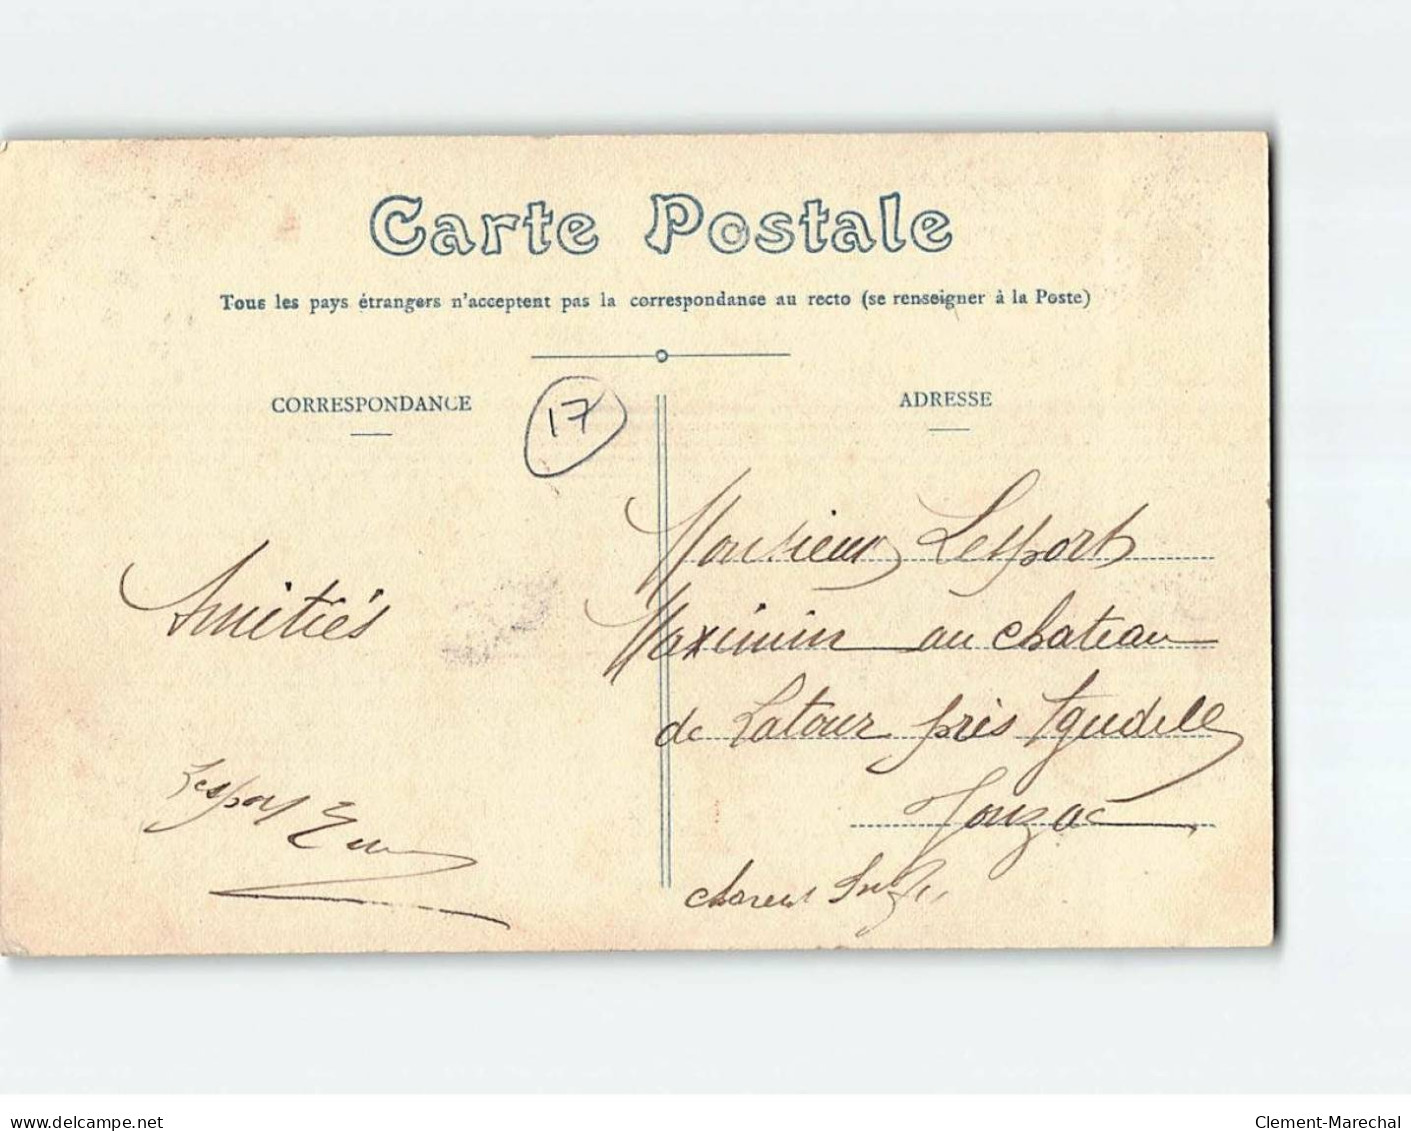 Carte Postale
Tous les pays étrangers n'acceptent pas la correspondance au recto (se renseigner à la Poste)
CORRESPONDANCE
17
ADRESSE
Amitiés
Lesport
Monsieur Lesport
Maximin au chateau
de Latour près Agudelle
Jonzac
delcampe.net
Clement-Marechal